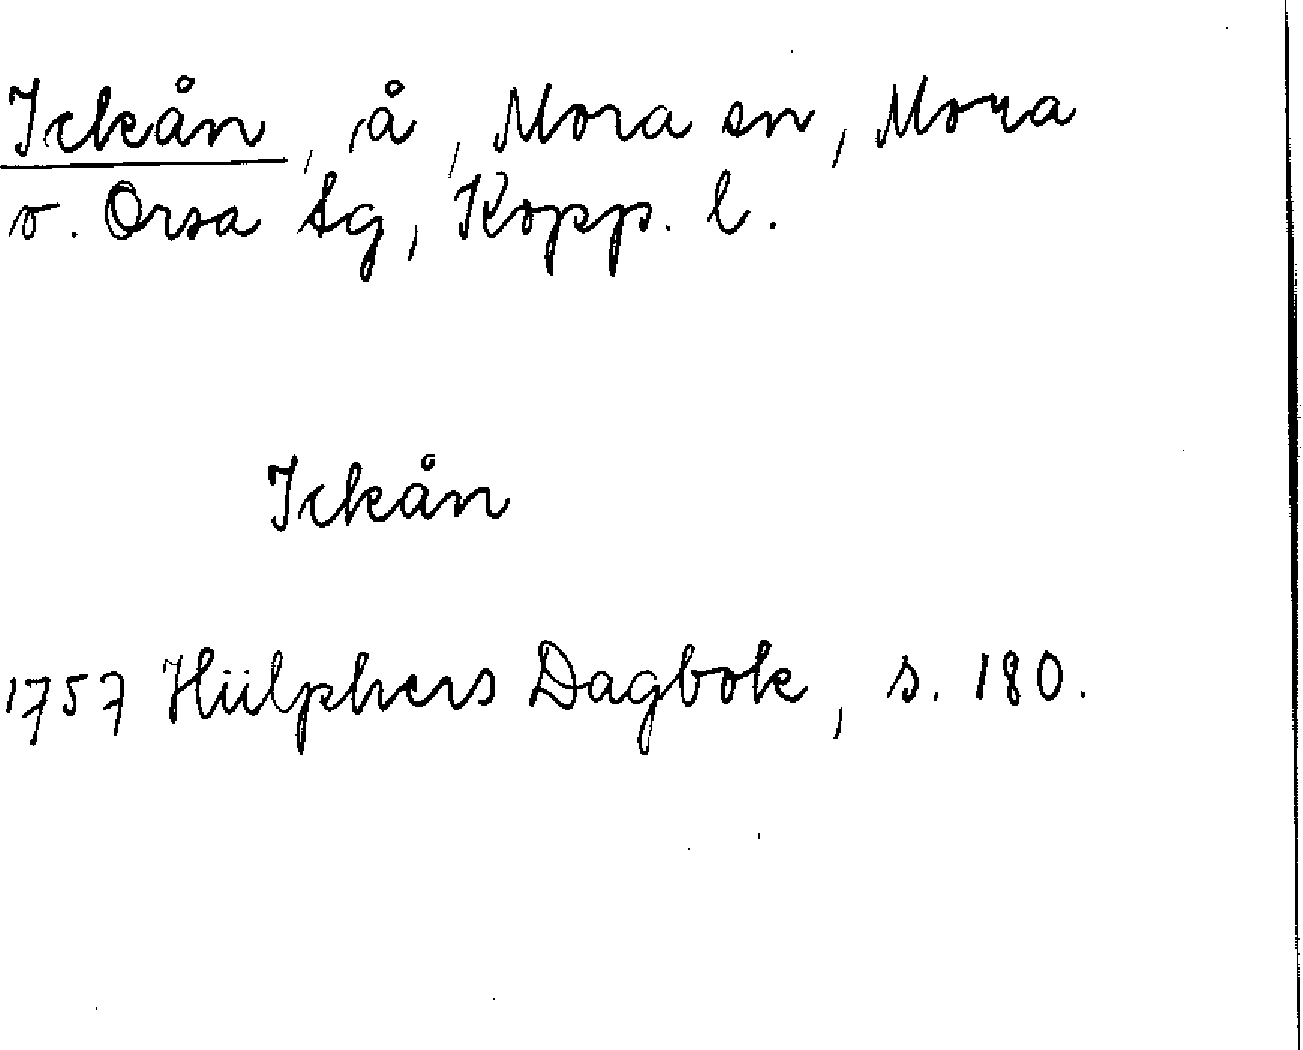 Ickån, å, Mora sn, Mora
o. Orsa tg, Kopp. l.
Ickån
1757 Hülphers Dagbok, s. 180.